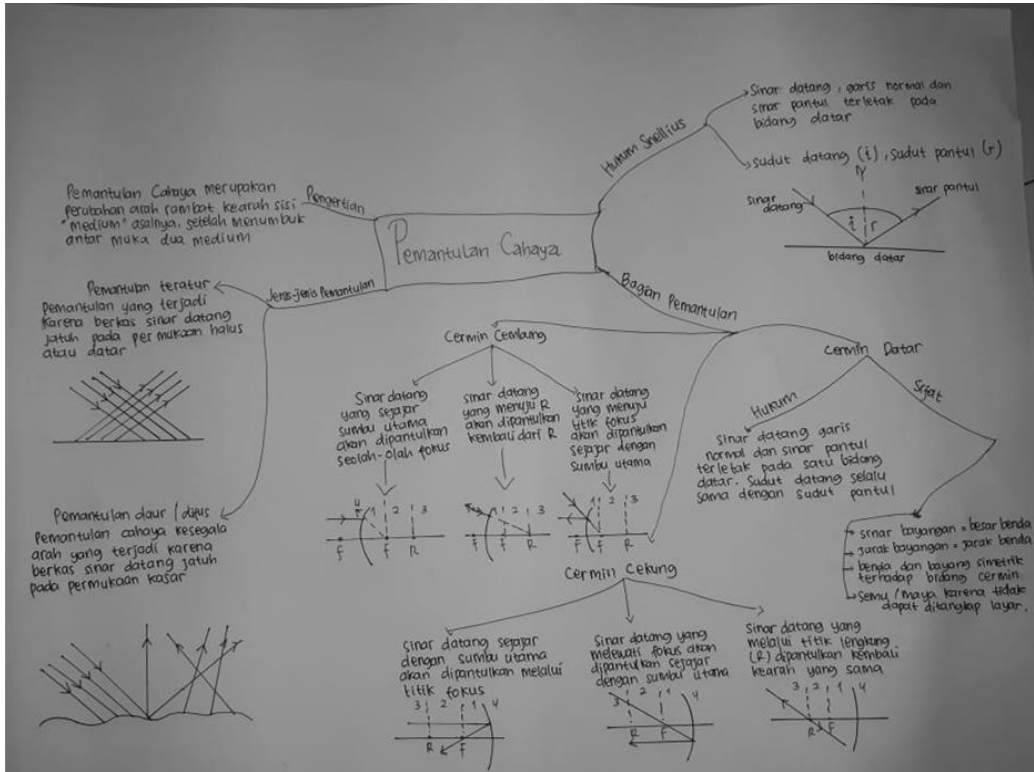 Pemantulan Cahaya
Pengertian
Pemantulan Cahaya merupakan
perubahan arah rambat kearah sisi
"medium" asalnya, setelah menumbuk
antar muka dua medium
Jenis-jenis Pemantulan
Pemantulan teratur
Pemantulan yang terjadi
karena berkas sinar datang
jatuh pada permukaan halus
atau datar
Pemantulan baur / difus
Pemantulan cahaya kesegala
arah yang terjadi karena
berkas sinar datang jatuh
pada permukaan kasar
Hukum Snellius
Sinar datang, garis normal dan
sinar pantul terletak pada
bidang datar
sudut datang (i), sudut pantul (r)
N
sinar
datang
sinar pantul
i r
bidang datar
Bagian Pemantulan
Cermin Cembung
Sinar datang
yang sejajar
sumbu utama
akan dipantulkan
seolah-olah fokus
4 1 2 3
f f R
sinar datang
yang menuju R
akan dipantulkan
kembali dari R
1 2 3
f f R
sinar datang
yang menuju
titik fokus
akan dipantulkan
sejajar dengan
sumbu utama
1 2 3
f f R
Cermin Datar
Hukum
Sinar datang garis
normal dan sinar pantul
terletak pada satu bidang
datar. Sudut datang selalu
sama dengan sudut pantul
Sifat
sinar bayangan = besar benda
jarak bayangan = jarak benda
benda dan bayang simetrik
terhadap bidang cermin
semu / maya karena tidak
dapat ditangkap layar.
Cermin Cekung
Sinar datang sejajar
dengan sumbu utama
akan dipantulkan melalui
titik fokus
3 2 1 4
R f
Sinar datang yang
melewati fokus akan
dipantulkan sejajar
dengan sumbu utama
3 2 1 4
R f
Sinar datang yang
melalui titik lengkung
(R) dipantulkan kembali
kearah yang sama
3 2 1 4
R f